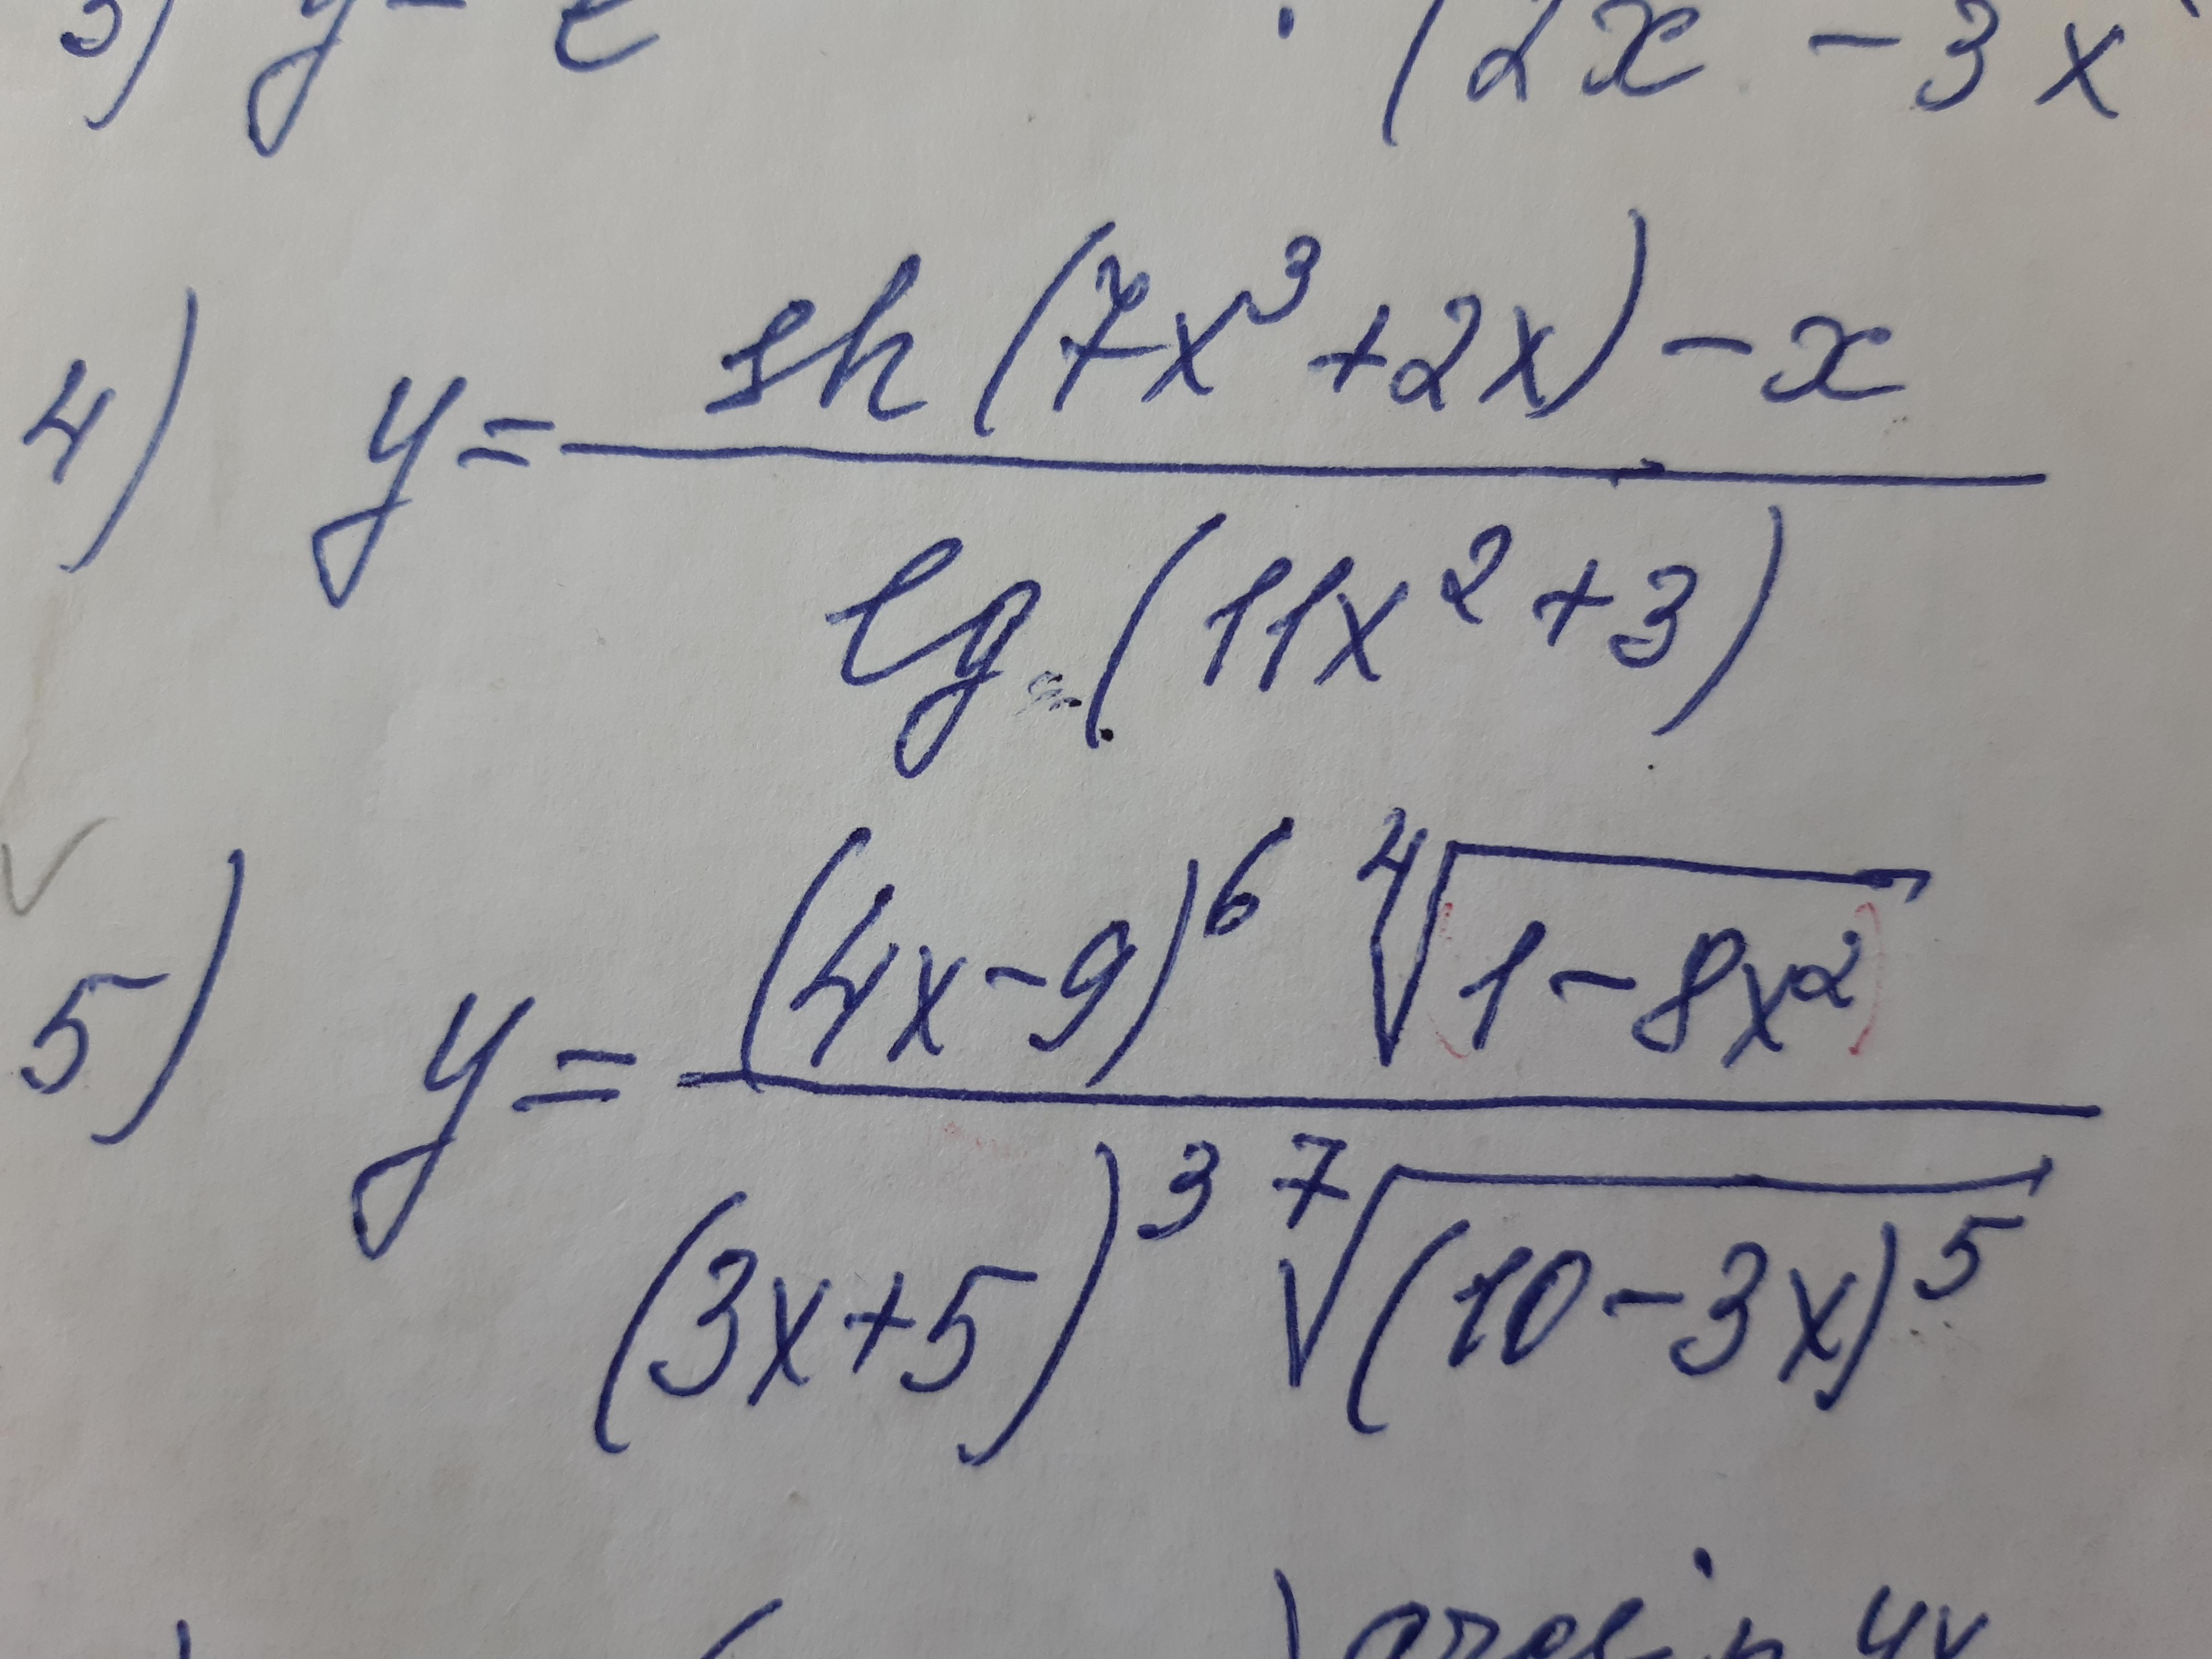 3) y = e · (2x - 3x
4) y = \frac{sh(7x^3+2x)-x}{lg(11x^2+3)}
5) y = \frac{(4x-9)^6 \sqrt[4]{1-8x^2}}{(3x+5)^3 \sqrt[7]{(10-3x)^5}}
arcsin 4x